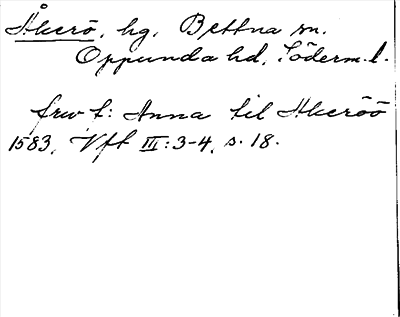 Åkerö, hg, Bettna sn.
Oppunda hd, Söderm. l.
frw f: Anna til Akeröö
1583, Vft III:3-4, s. 18.